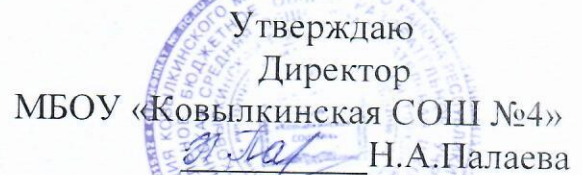 Утверждаю
Директор
МБОУ «Ковылкинская СОШ №4»
Н.А.Палаева